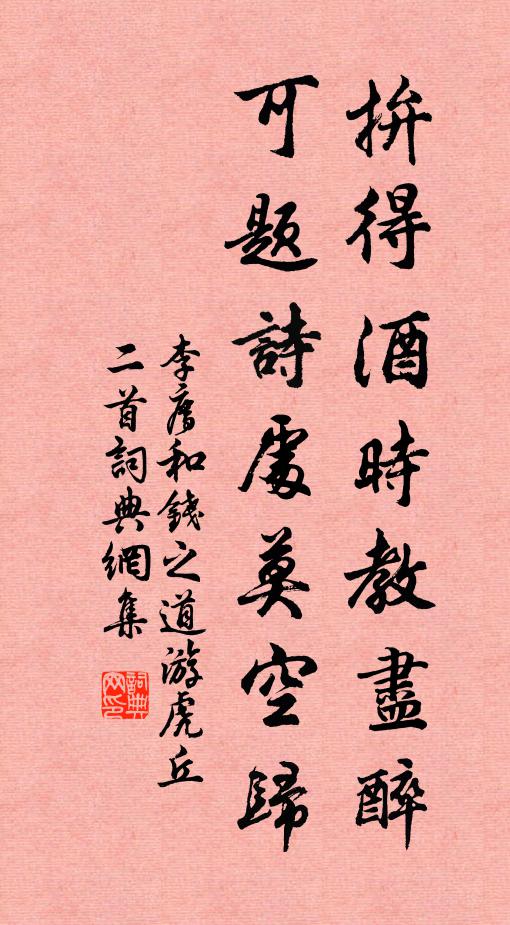 拚得酒時教盡醉
可題詩處莫空歸
李廌和錢之道游虎丘
二首詞典網集
詞典
网印